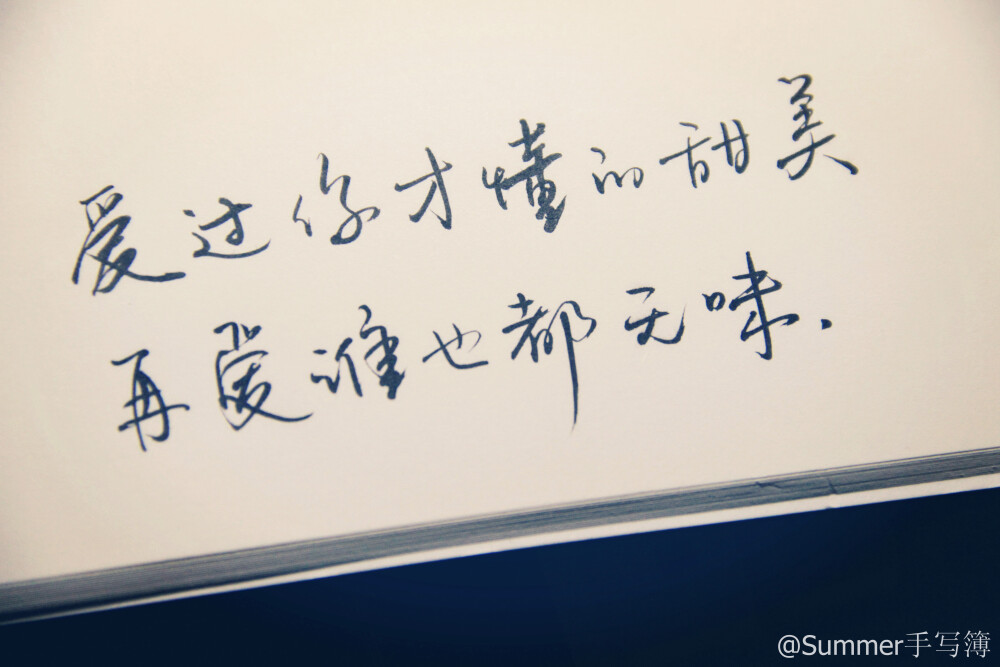 爱过你才懂的甜美
再爱谁也都无味.
@Summer手写簿